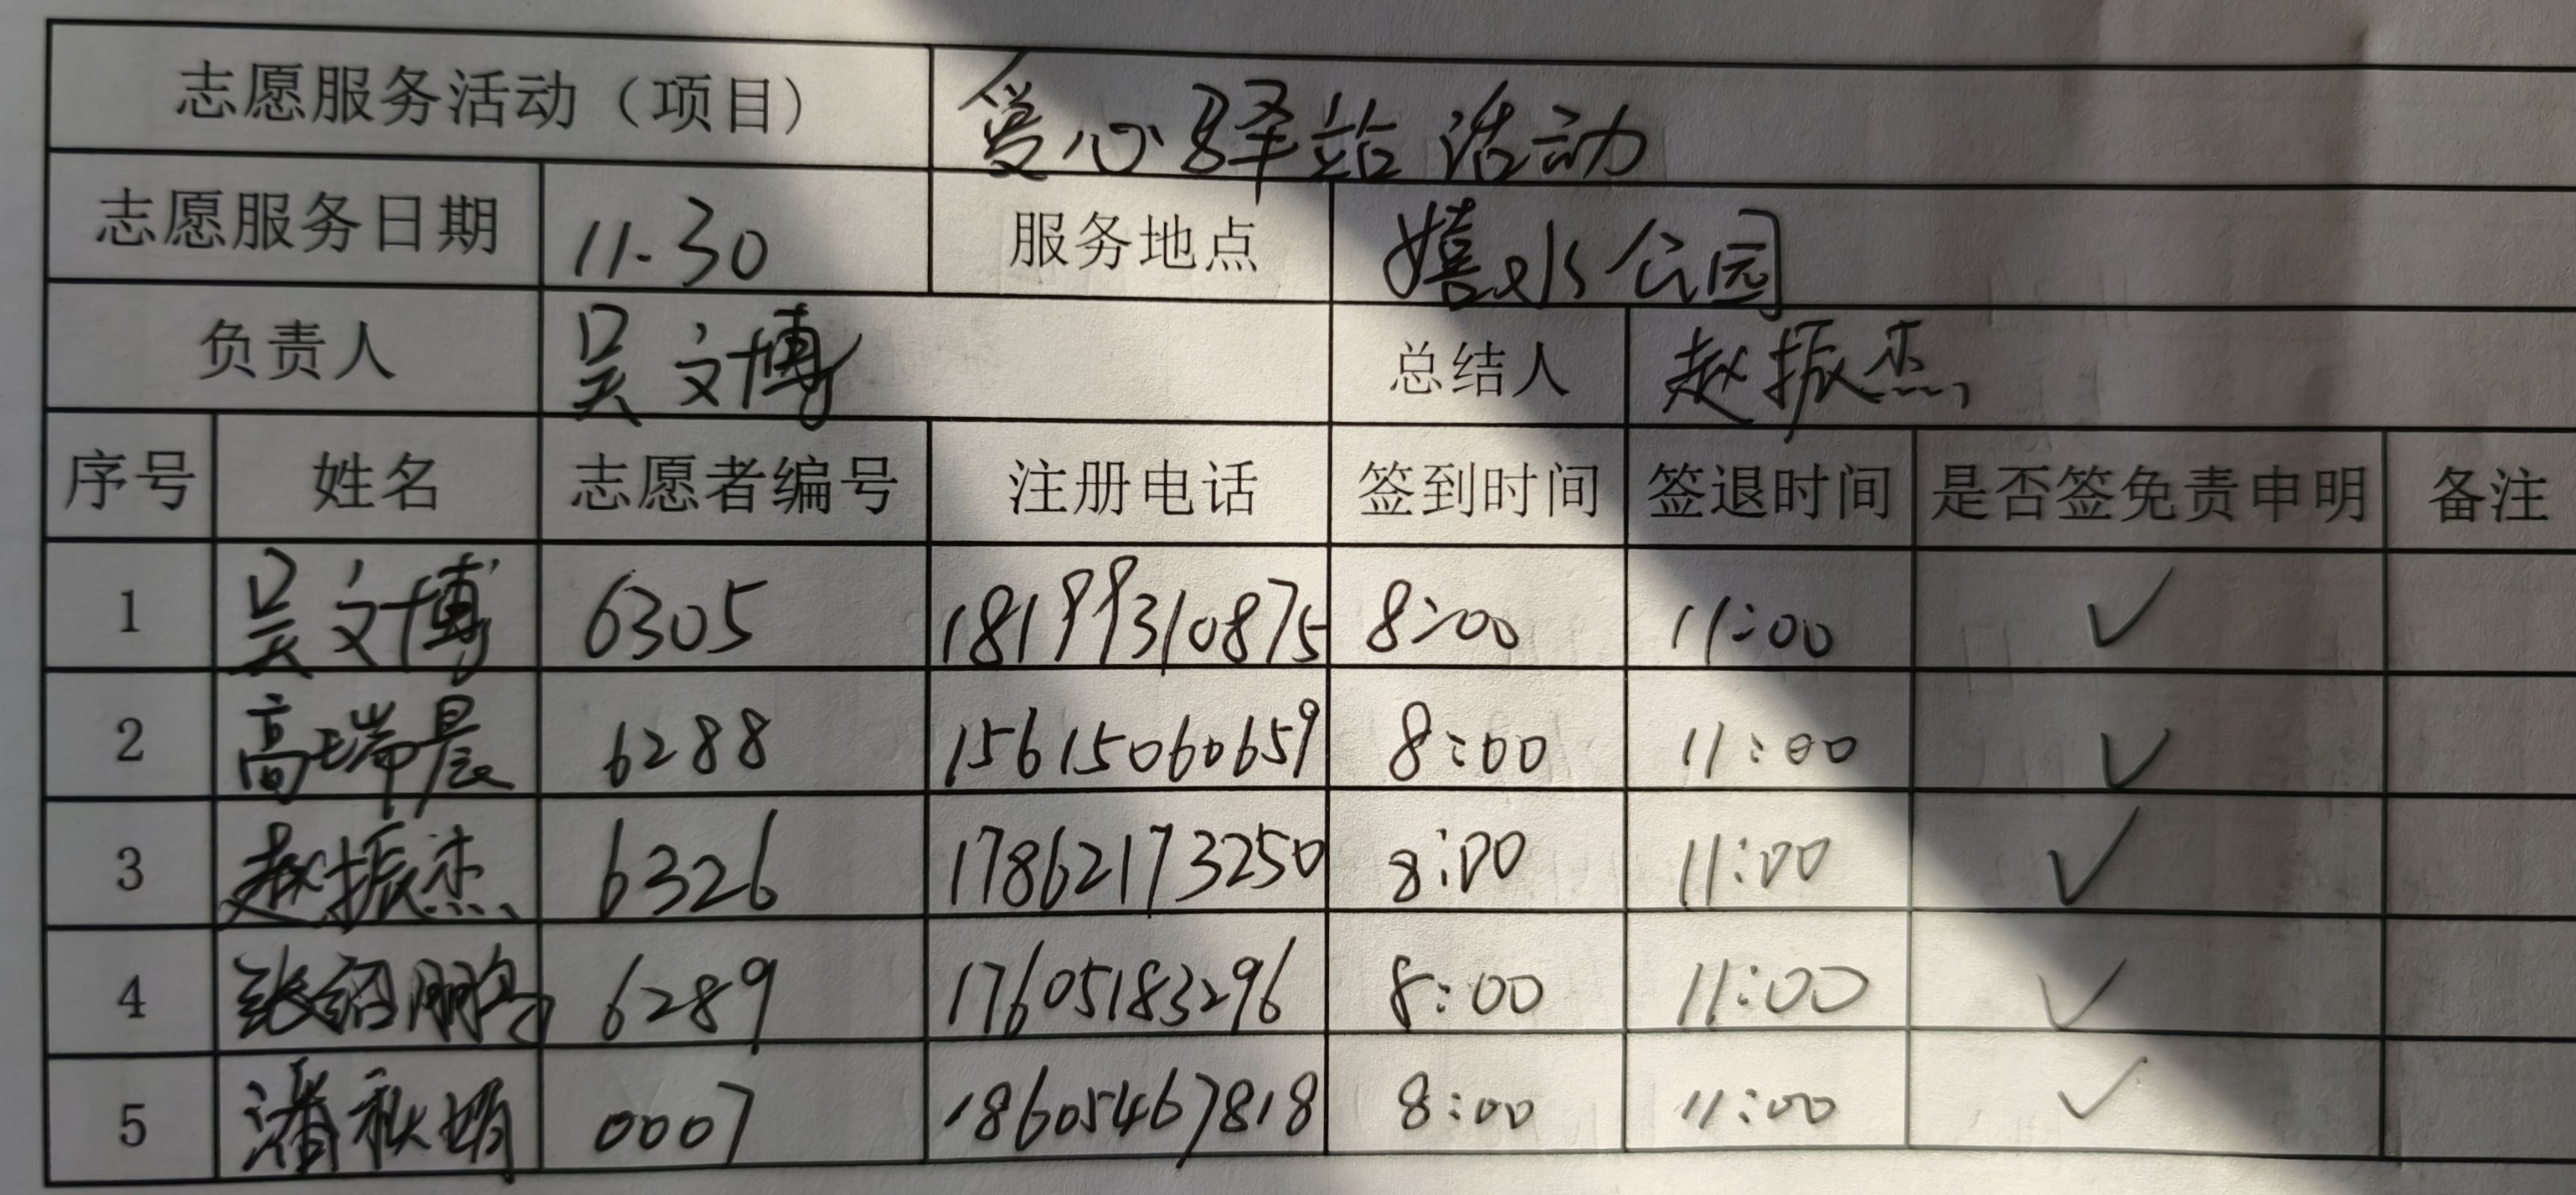 志愿服务活动（项目） 爱心驿站活动
志愿服务日期 11.30 服务地点 嬉水公园
负责人 吴文博 总结人 赵振杰
序号 姓名 志愿者编号 注册电话 签到时间 签退时间 是否签免责申明 备注
1 吴文博 6305 18199310875 8:00 11:00 ✓
2 高瑞晨 6288 15615060659 8:00 11:00 ✓
3 赵振杰 6326 17862173250 8:00 11:00 ✓
4 张绍鹏 6289 17605183296 8:00 11:00 ✓
5 潘秋娟 0007 18605467818 8:00 11:00 ✓